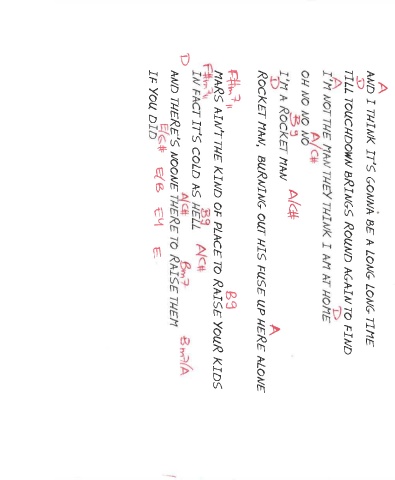 A
AND I THINK IT'S GONNA BE A LONG LONG TIME
D
TILL TOUCHDOWN BRINGS ROUND AGAIN TO FIND
A D
I'M NOT THE MAN THEY THINK I AM AT HOME
A/C#
OH NO NO NO
B9 A/C#
I'M A ROCKET MAN
D A
ROCKET MAN, BURNING OUT HIS FUSE UP HERE ALONE
F#m7 11 B9
MARS AIN'T THE KIND OF PLACE TO RAISE YOUR KIDS
F#m7 11 B9 A/C#
IN FACT IT'S COLD AS HELL
D A/C# Bm7 Bm7/A
AND THERE'S NOONE THERE TO RAISE THEM
E/G# E/B E4 E
IF YOU DID